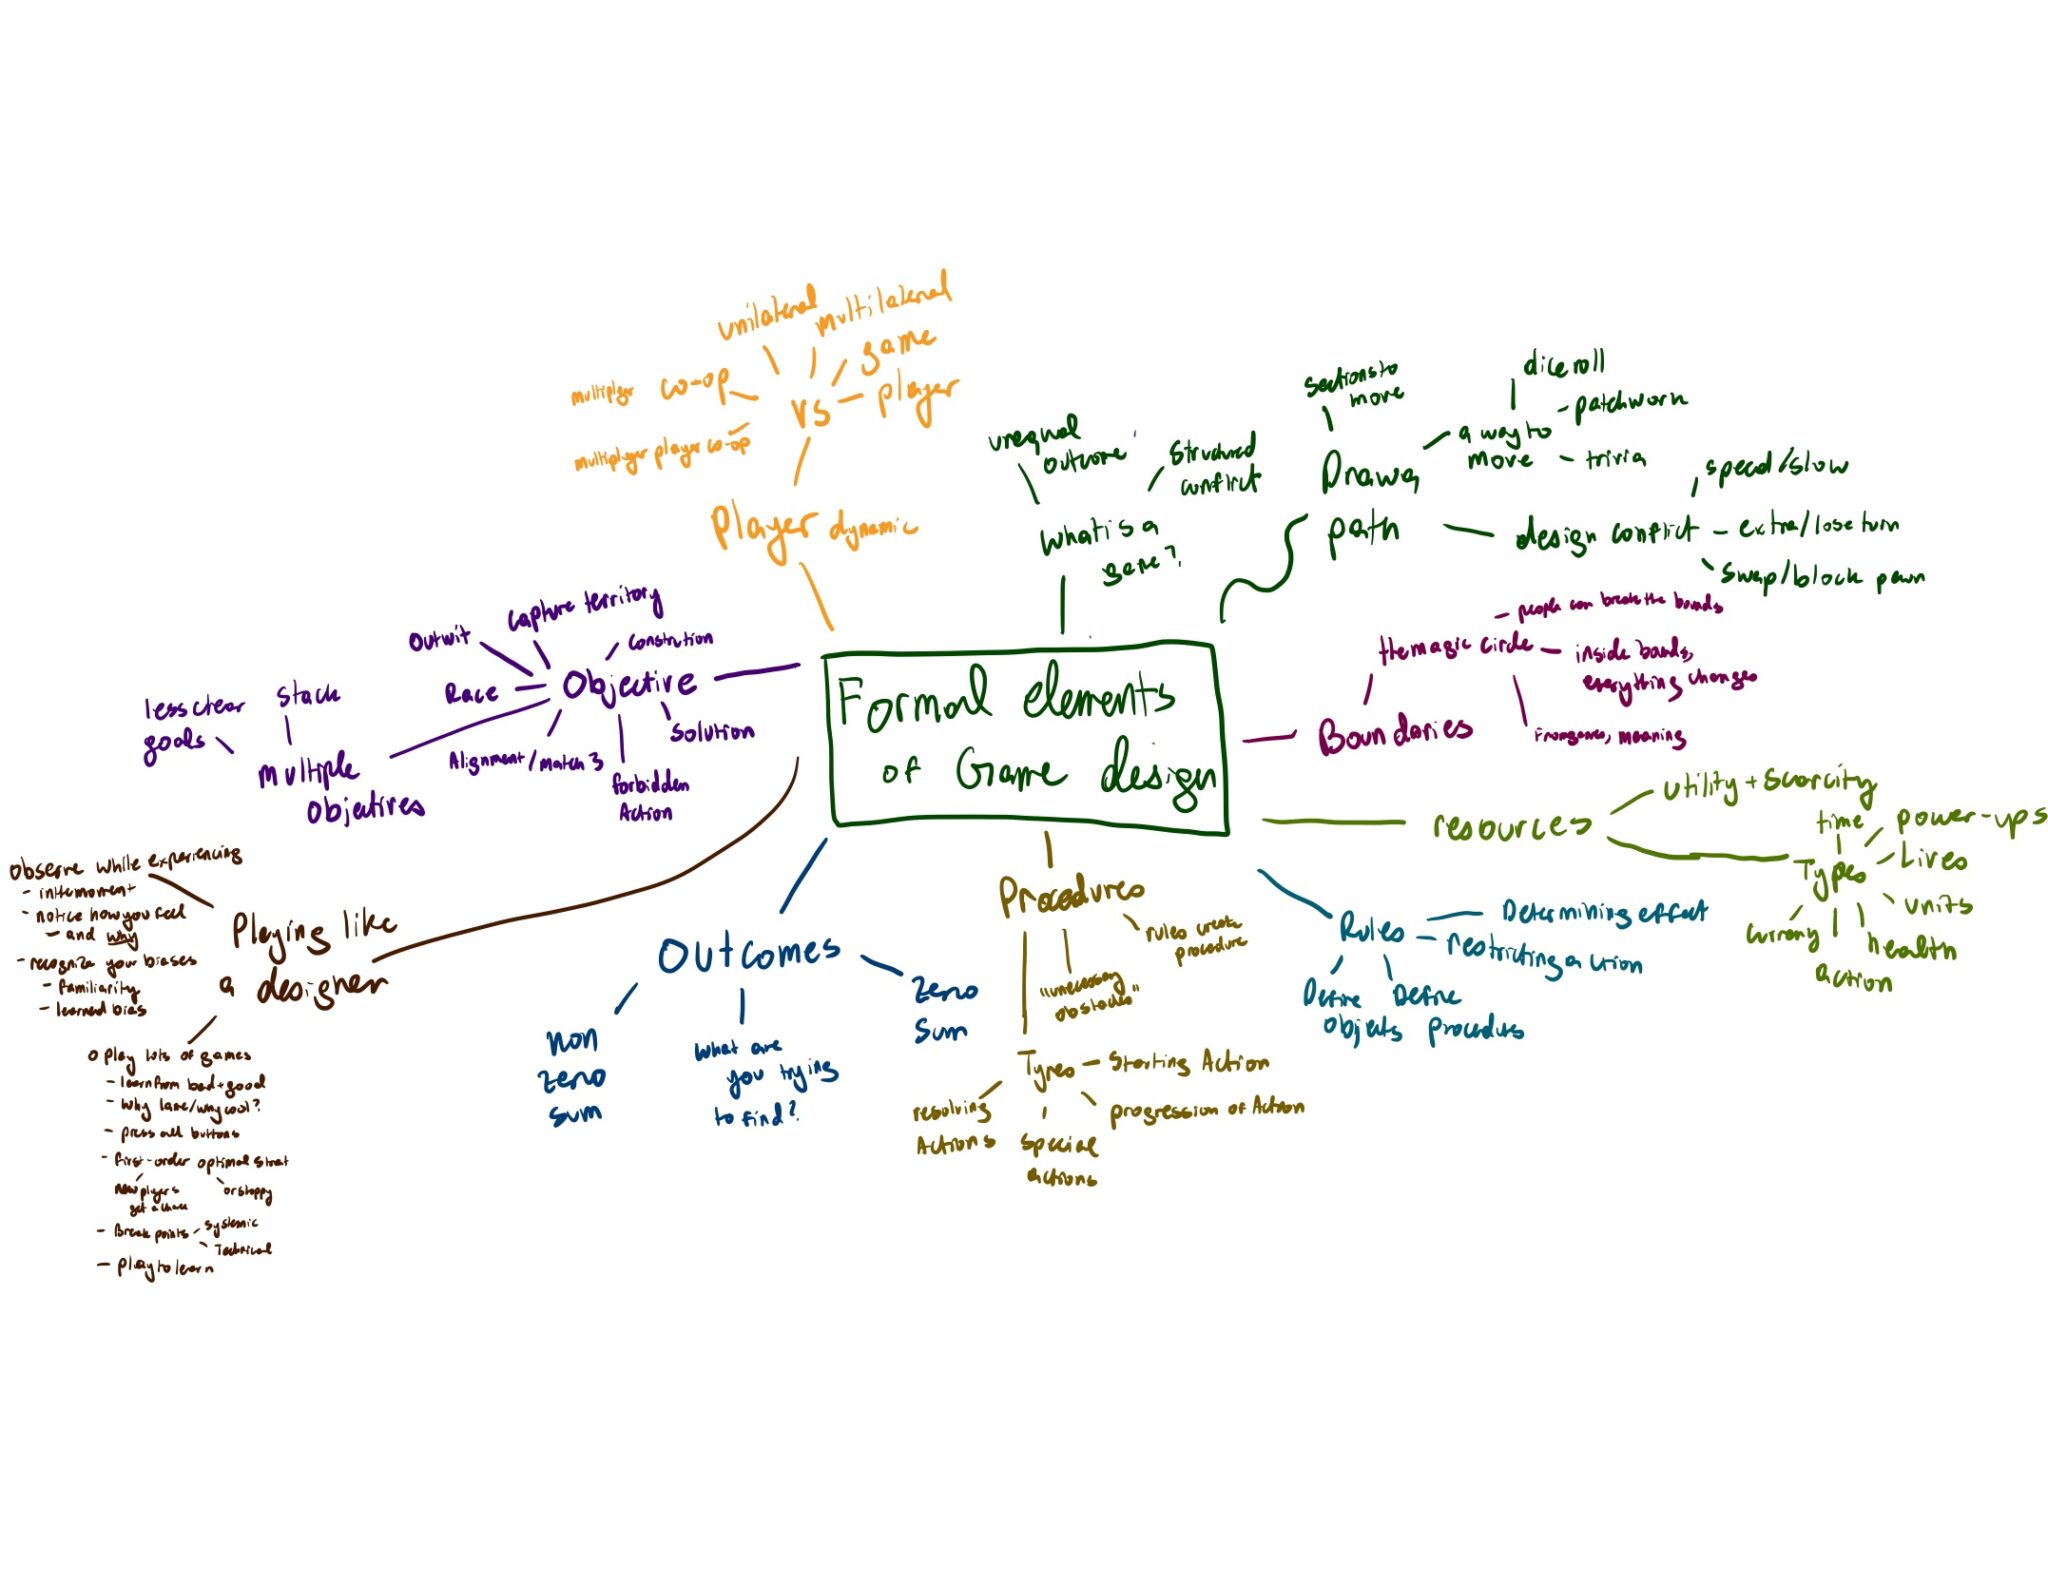 Formal elements
of Game design
Player dynamic
vs
unilateral
multilateral
game
player
multiplayer co-op
multiplayer player co-op
what is a
game?
unequal
outcome
Structured
conflict
Draw a
path
sections to
move
a way to
move
dice roll
- patchwork
- trivia
design conflict
speed/slow
- extra/lose turn
swap/block pawn
Boundaries
the magic circle
- people can break the bounds
inside bounds,
everything changes
meaning
resources
utility + scarcity
Types
time
power-ups
Lives
units
health
action
currency
Rules
Determining effect
restricting action
Define
objects
Define
procedures
Procedures
rules create
procedure
"unecessary
obstacles"
Types
Starting Action
progression of Action
special
actions
resolving
Actions
Outcomes
zero
sum
what are
you trying
to find?
non
zero
sum
Playing like
a designer
Observe while experiencing
- in the moment
- notice how you feel
- and why
- recognize your biases
- familiarity
- learned bias
o play lots of games
- learn from bad + good
- why lame/why cool?
- press all buttons
- first-order optimal strat
new players
get a chance
or sloppy
- Break points
- systemic
Technical
- play to learn
Objective
Outwit
capture territory
constrution
Race
Solution
forbidden
Action
Alignment/match 3
multiple
objectives
stack
less clear
goals